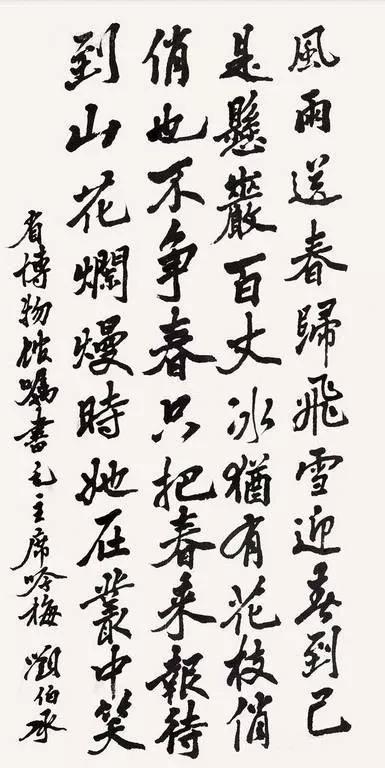 風雨送春歸飛雪迎春到已
是懸巖百丈冰猶有花枝俏
俏也不争春只把春来報待
到山花爛熳時她在叢中笑
省博物馆嘱書毛主席咏梅 劉伯承